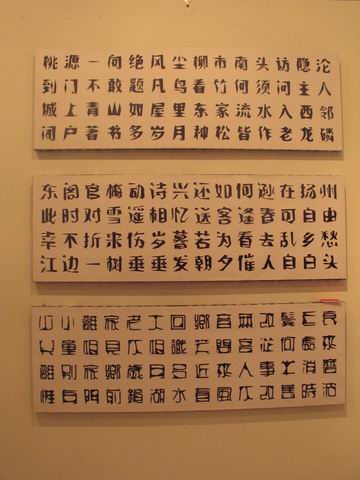 桃源一向绝风尘柳市南头访隐沦
到门不敢题凡鸟看竹何须问主人
城上青山如屋里东家流水入西邻
闭户著书多岁月种松皆作老龙鳞
东阁官梅动诗兴还如何逊在扬州
此时对雪遥相忆送客逢春可自由
幸不折来伤岁暮若为看去乱乡愁
江边一树垂垂发朝夕催人自白头
少小離家老大回鄉音無改鬢毛衰
兒童相見不相識笑問客從何處來
離別家鄉歲月多近來人事半消磨
惟有門前鏡湖水春風不改舊時波